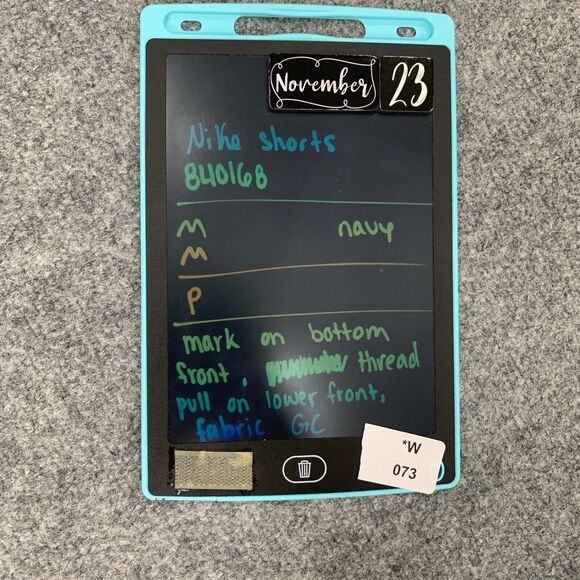 November 23
Nike shorts
840168
M navy
M
P
mark on bottom
front, thread
pull on lower front,
fabric GC
*W
073